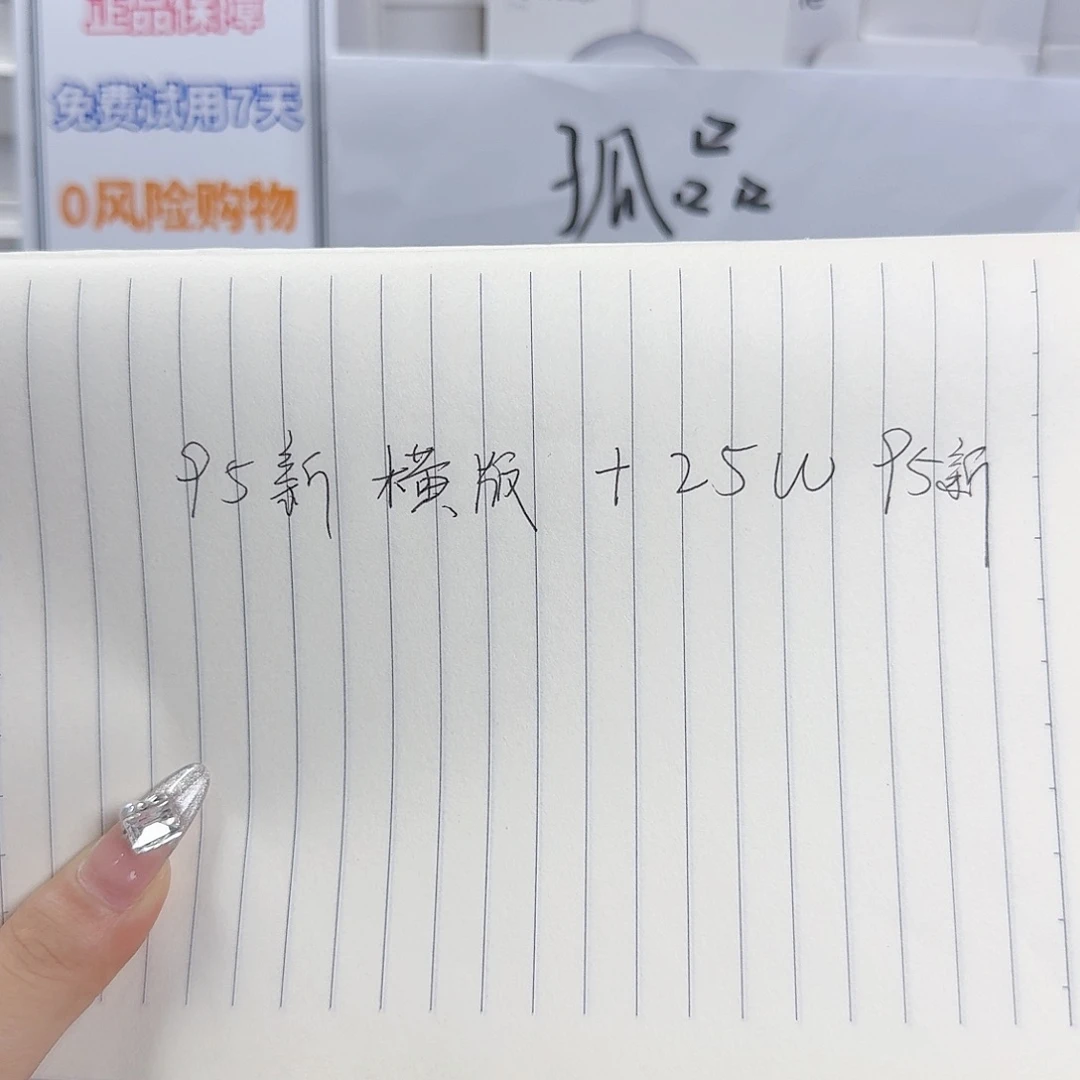 正品保障
免费试用7天
0风险购物
孤品
95新 横版 + 25W 95新